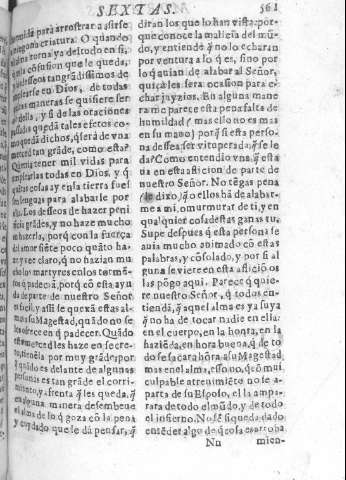 SEXTAS.
561
para arrostrar a asirse
ninguna criatura. O quando
torna ya del todo en si,
en la cõfusion que le queda,
y los desseos tan grãdissimos de
emplearse en Dios, de todas
maneras se quisiere ser
della, y si de las oraciones
passadas quedã tales efetos co-
mo quedã dichos, q̃ serà de vna
merced tan grãde, como esta?
Querria tener mil vidas para
emplearlas todas en Dios, y q̃
quãtas cosas ay en la tierra fues
sen lenguas para alabarle por
ello. Los desseos de hazer peni
tencia grãdes, y no haze mucho
en hazerla, porq̃ con la fuerça
del amor siẽte poco quãto ha-
ze, y vee claro, q̃ no hazian mu
cho los martyres en los tormẽ-
tos q̃ padeciã, porq̃ cõ esta ayu
da de parte de nuestro Señor
es facil, y assi se quexã estas al-
mas a su Magestad, quãdo no se
les ofrece en q̃ padecer. Quãdo
esta merced les haze en secre-
to, tienẽla por muy grãde; por
q̃ quãdo es delante de algunas
personas es tan grãde el corri-
miẽto, y afrenta q̃ les queda, q̃
en alguna manera desembeue
el alma de lo q̃ goza cõ la pena
y cuydado que le dà pensar, q̃
diran los que lo han visto: por-
que conoce la malicia del mũ-
do, y entiende q̃ no lo echaran
por ventura a lo q̃ es, sino por
lo q̃ auian de alabar al Señor,
quiçà les sera ocasion para e-
char juyzios. En alguna mane
ra me parece esta pena falta de
humildad (mas ello no es mas
en su mano) porq̃ si esta perso-
na dessea ser vituperada, q̃ se le
da? Como entendio vna, q̃ esta
ua en esta aflicion de parte de
nuestro Señor. No tẽgas pena
(le dixo) q̃ o ellos hã de alabar-
me a mi, o murmurar de ti, y en
qualquier cosa destas ganas tu.
Supe despues q̃ esta persona se
auia mucho animado cõ estas
palabras, y cõsolado, y por si al
guna se viere en esta afliciõ os
las põgo aqui. Parece q̃ quie-
re nuestro Señor, q̃ todos en-
tiendã, q̃ aquel alma es ya suya
q̃ no ha de tocar nadie en ella:
en el cuerpo, en la honra, en la
haziẽda, en hora buena, q̃ de to
do se sacarà hõra a su Magestad,
mas en el alma, esso no, q̃ cõ mui
culpable atreuimiẽto no se a-
parta de su Esposo, el la ampa-
rara de todo el mũdo, y de todo
el infierno. No sè si queda dado
a entẽder algo de q̃ cosa es arroba
Nn
mien-